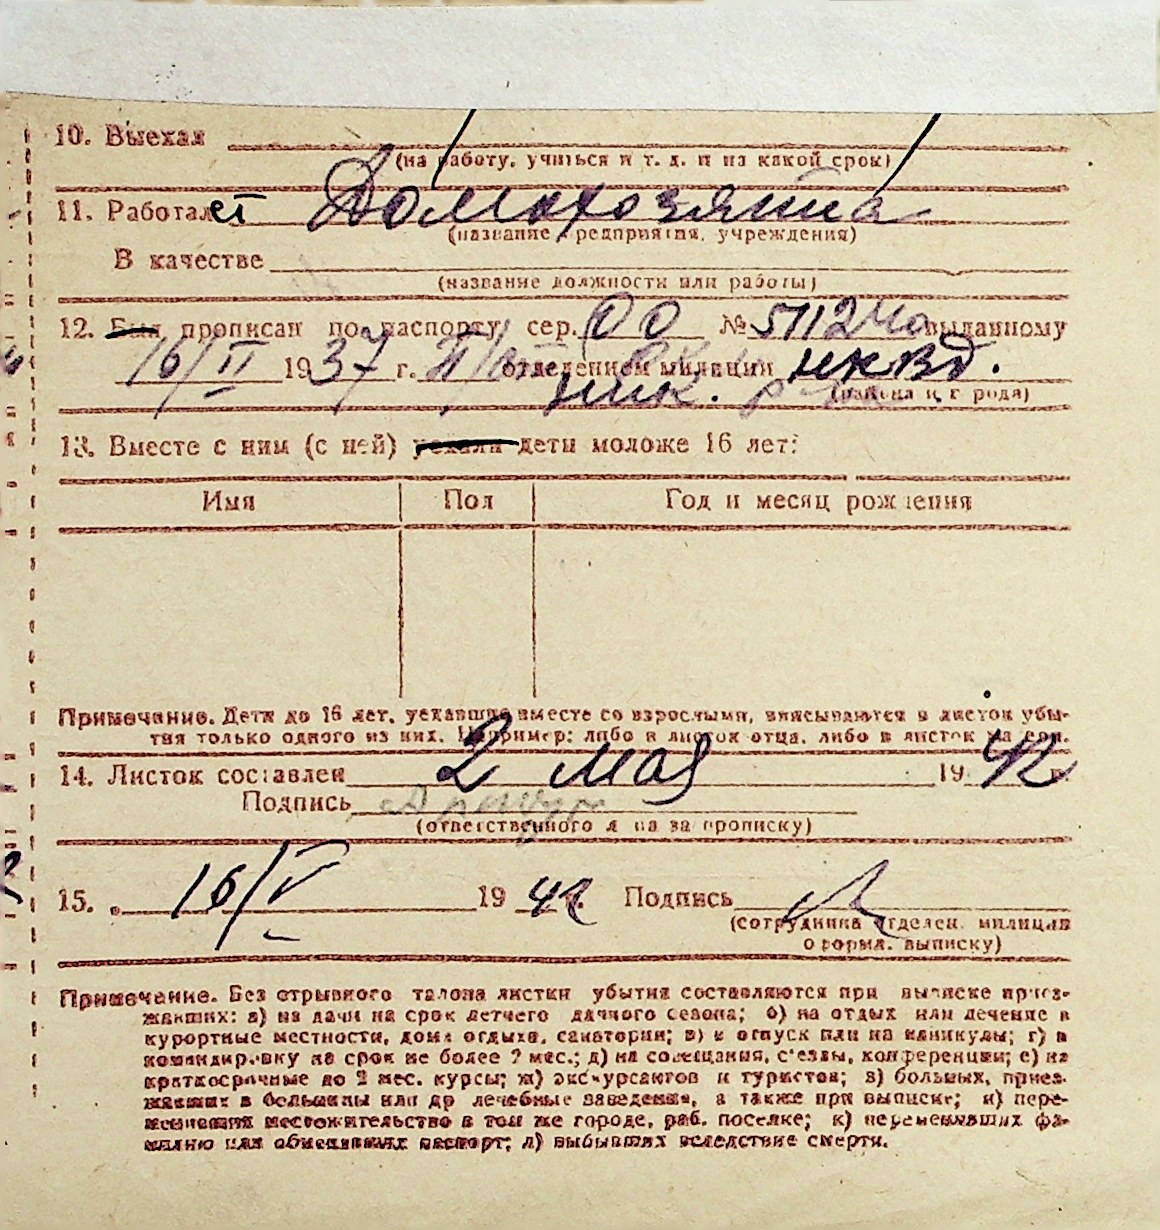 10. Выехал
(на работу, учиться и т. д. и на какой срок)
11. Работает Домохозяйка
(название предприятия, учреждения)
В качестве
(название должности или работы)
12. Был прописан по паспорту сер. №511240 выданному
16/II 1937 г. отделением милиции НКВД.
(района и г рода)
13. Вместе с ним (с ней) уехали дети моложе 16 лет:
Имя Пол Год и месяц рождения
Примечание. Дети до 16 лет, уехавшие вместе со взрослыми, вписываются в листок убы-
тия только одного из них. Например: либо в листок отца, либо в листок матери.
14. Листок составлен 2 мая 1942
Подпись
(ответственного лица за прописку)
15. 16/V 1942 г. Подпись
(сотрудника отделен. милиции
оформл. выписку)
Примечание. Без отрывного талона листки убытия составляются при выписке приез-
жавших: а) на дачи на срок летнего дачного сезона; б) на отдых или лечение в
курортные местности, дома отдыха, санатории; в) в отпуск или на каникулы; г) в
командировку на срок не более 2 мес.; д) на совещания, с'езды, конференции; е) на
краткосрочные до 2 мес. курсы; ж) экскурсантов и туристов; з) больных, приез-
жавших в больницы или др лечебные заведения, а также при выписке; и) пере-
менивших местожительство в том же городе, раб. поселке; к) переменивших фа-
милию или обменявших паспорт; л) выбывших вследствие смерти.